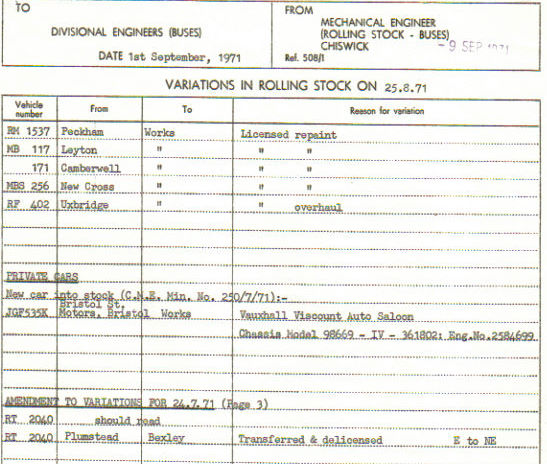 TO
DIVISIONAL ENGINEERS (BUSES)
DATE 1st September, 1971
FROM
MECHANICAL ENGINEER
(ROLLING STOCK - BUSES)
CHISWICK
- 9 SEP 1971
Ref. 508/1
VARIATIONS IN ROLLING STOCK ON 25.8.71
Vehicle number From To Reason for variation
RM 1537 Peckham Works Licensed repaint
MB 117 Leyton " " "
171 Camberwell " " "
MBS 256 New Cross " " "
RF 402 Uxbridge " " overhaul
PRIVATE CARS
New car into stock (C.M.E. Min. No. 250/7/71):-
Bristol St.
JGF535K Motors, Bristol Works Vauxhall Viscount Auto Saloon
Chassis Model 98669 - IV - 361802: Eng.No.2584699
AMENDMENT TO VARIATIONS FOR 24.7.71 (Page 3)
RT 2040 should read
RT 2040 Plumstead Bexley Transferred & delicensed E to NE